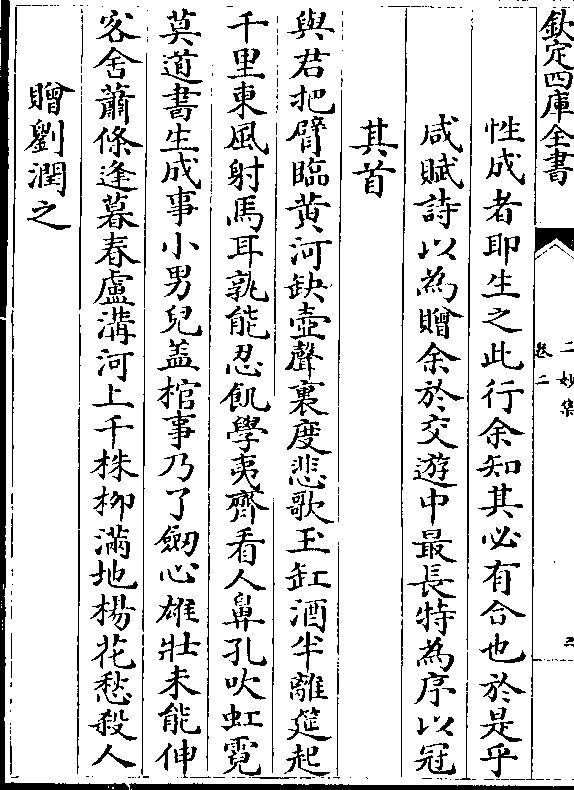 欽定四庫全書
二妙集
卷二
三
性成者耶生之此行余知其必有合也於是乎
咸賦詩以為贈余於交遊中最長特為序以冠
其首
與君把臂臨黄河缺壺聲裏度悲歌玉缸酒半離筵起
千里東風射馬耳孰能忍飢學夷齊看人鼻孔吹虹霓
莫道書生成事小男兒盖棺事乃了劒心雄壯未能伸
客舍蕭條逢暮春盧溝河上千株柳滿地楊花愁殺人
贈劉潤之